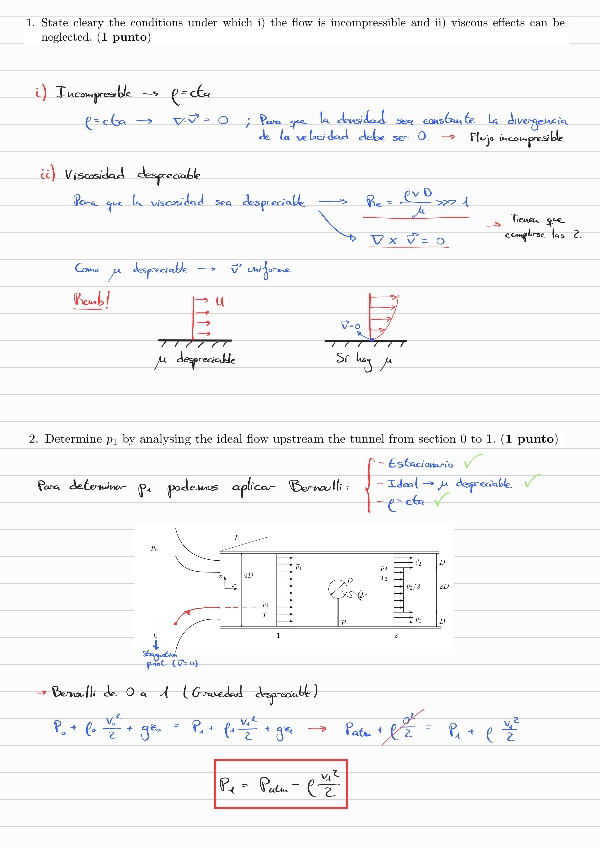 1. State cleary the conditions under which i) the flow is incompressible and ii) viscous effects can be
neglected. (1 punto)
i) Incompresible → ρ = cta
ρ = cta → ∇·v⃗ = 0 ; Para que la densidad sea constante la divergencia
de la velocidad debe ser 0 → Flujo incompresible
ii) Viscosidad despreciable
Para que la viscosidad sea despreciable → Re = ρVD/μ >>> 1
∇ x v⃗ = 0
→ Tienen que
cumplirse las 2.
Como μ despreciable → v⃗ uniforme
Remb!
U
v⃗=0
μ despreciable
Si hay μ
2. Determine p₁ by analysing the ideal flow upstream the tunnel from section 0 to 1. (1 punto)
Para determinar p₁ podemos aplicar Bernoulli:
- Estacionario ✓
- Ideal → μ despreciable ✓
- ρ = cta ✓
L
4D
D
2D
D
1
2
0
stagnation
point (v⃗=0)
→ Bernoulli de 0 a 1 (Gravedad despreciable)
P₀ + ρ₀ v₀²/2 + gz₀ = P₁ + ρ₁ v₁²/2 + gz₁ → Patm + ρ 0²/2 = P₁ + ρ v₁²/2
P₁ = Patm - ρ v₁²/2